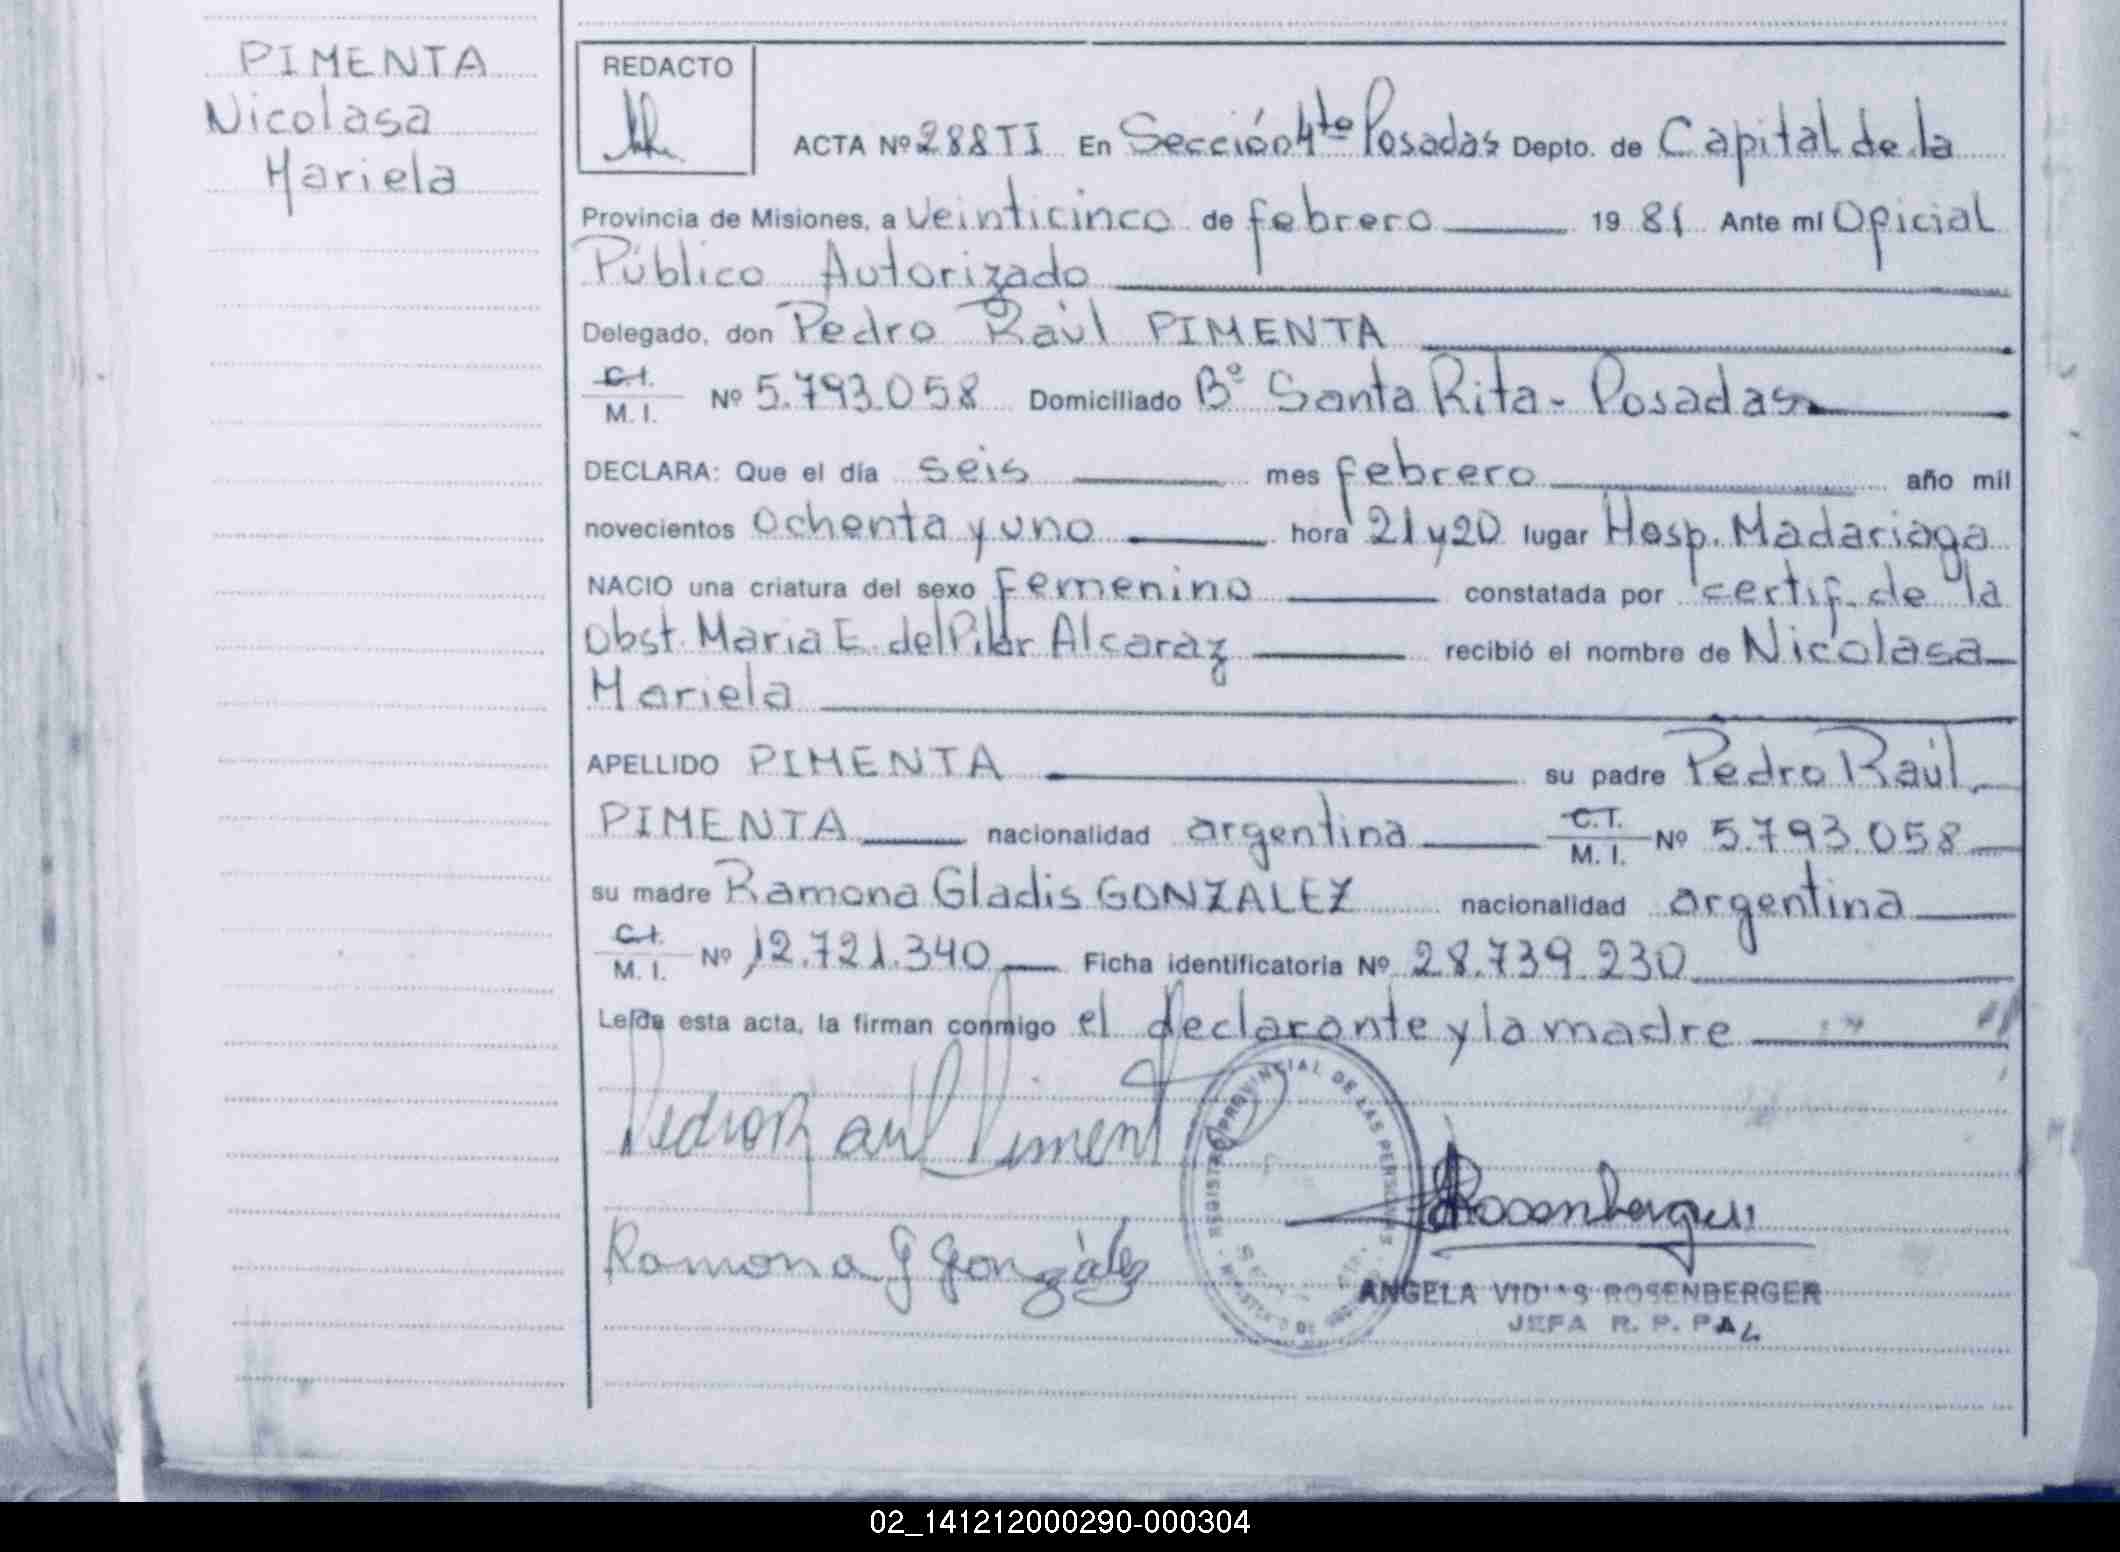 PIMENTA
Nicolasa
Mariela
REDACTO
ACTA Nº 288 TI En Sección 4ta Posadas Depto. de Capital de la
Provincia de Misiones, a veinticinco de febrero 19 81 Ante mí Oficial
Público Autorizado
Delegado, don Pedro Raúl PIMENTA
C.I.
M. I. Nº 5.793.058 Domiciliado Bº Santa Rita - Posadas
DECLARA: Que el día seis mes febrero año mil
novecientos ochenta y uno hora 21 y 20 lugar Hosp. Madariaga
NACIO una criatura del sexo femenino constatada por certif. de la
Obst. Maria E. del Pilar Alcaraz recibió el nombre de Nicolasa
Mariela
APELLIDO PIMENTA su padre Pedro Raúl
PIMENTA nacionalidad argentina C.I.
M. I. Nº 5.793.058
su madre Ramona Gladis GONZALEZ nacionalidad argentina
C.I.
M. I. Nº 12.721.340 Ficha identificatoria Nº 28.739.230
Leída esta acta, la firman conmigo el declarante y la madre
Pedro Raul Piment
REGISTRO PROVINCIAL DE LAS PERSONAS
Rosenberger
Ramona G González
ANGELA ROSENBERGER
JEFA R. P. PAL
02_141212000290-000304